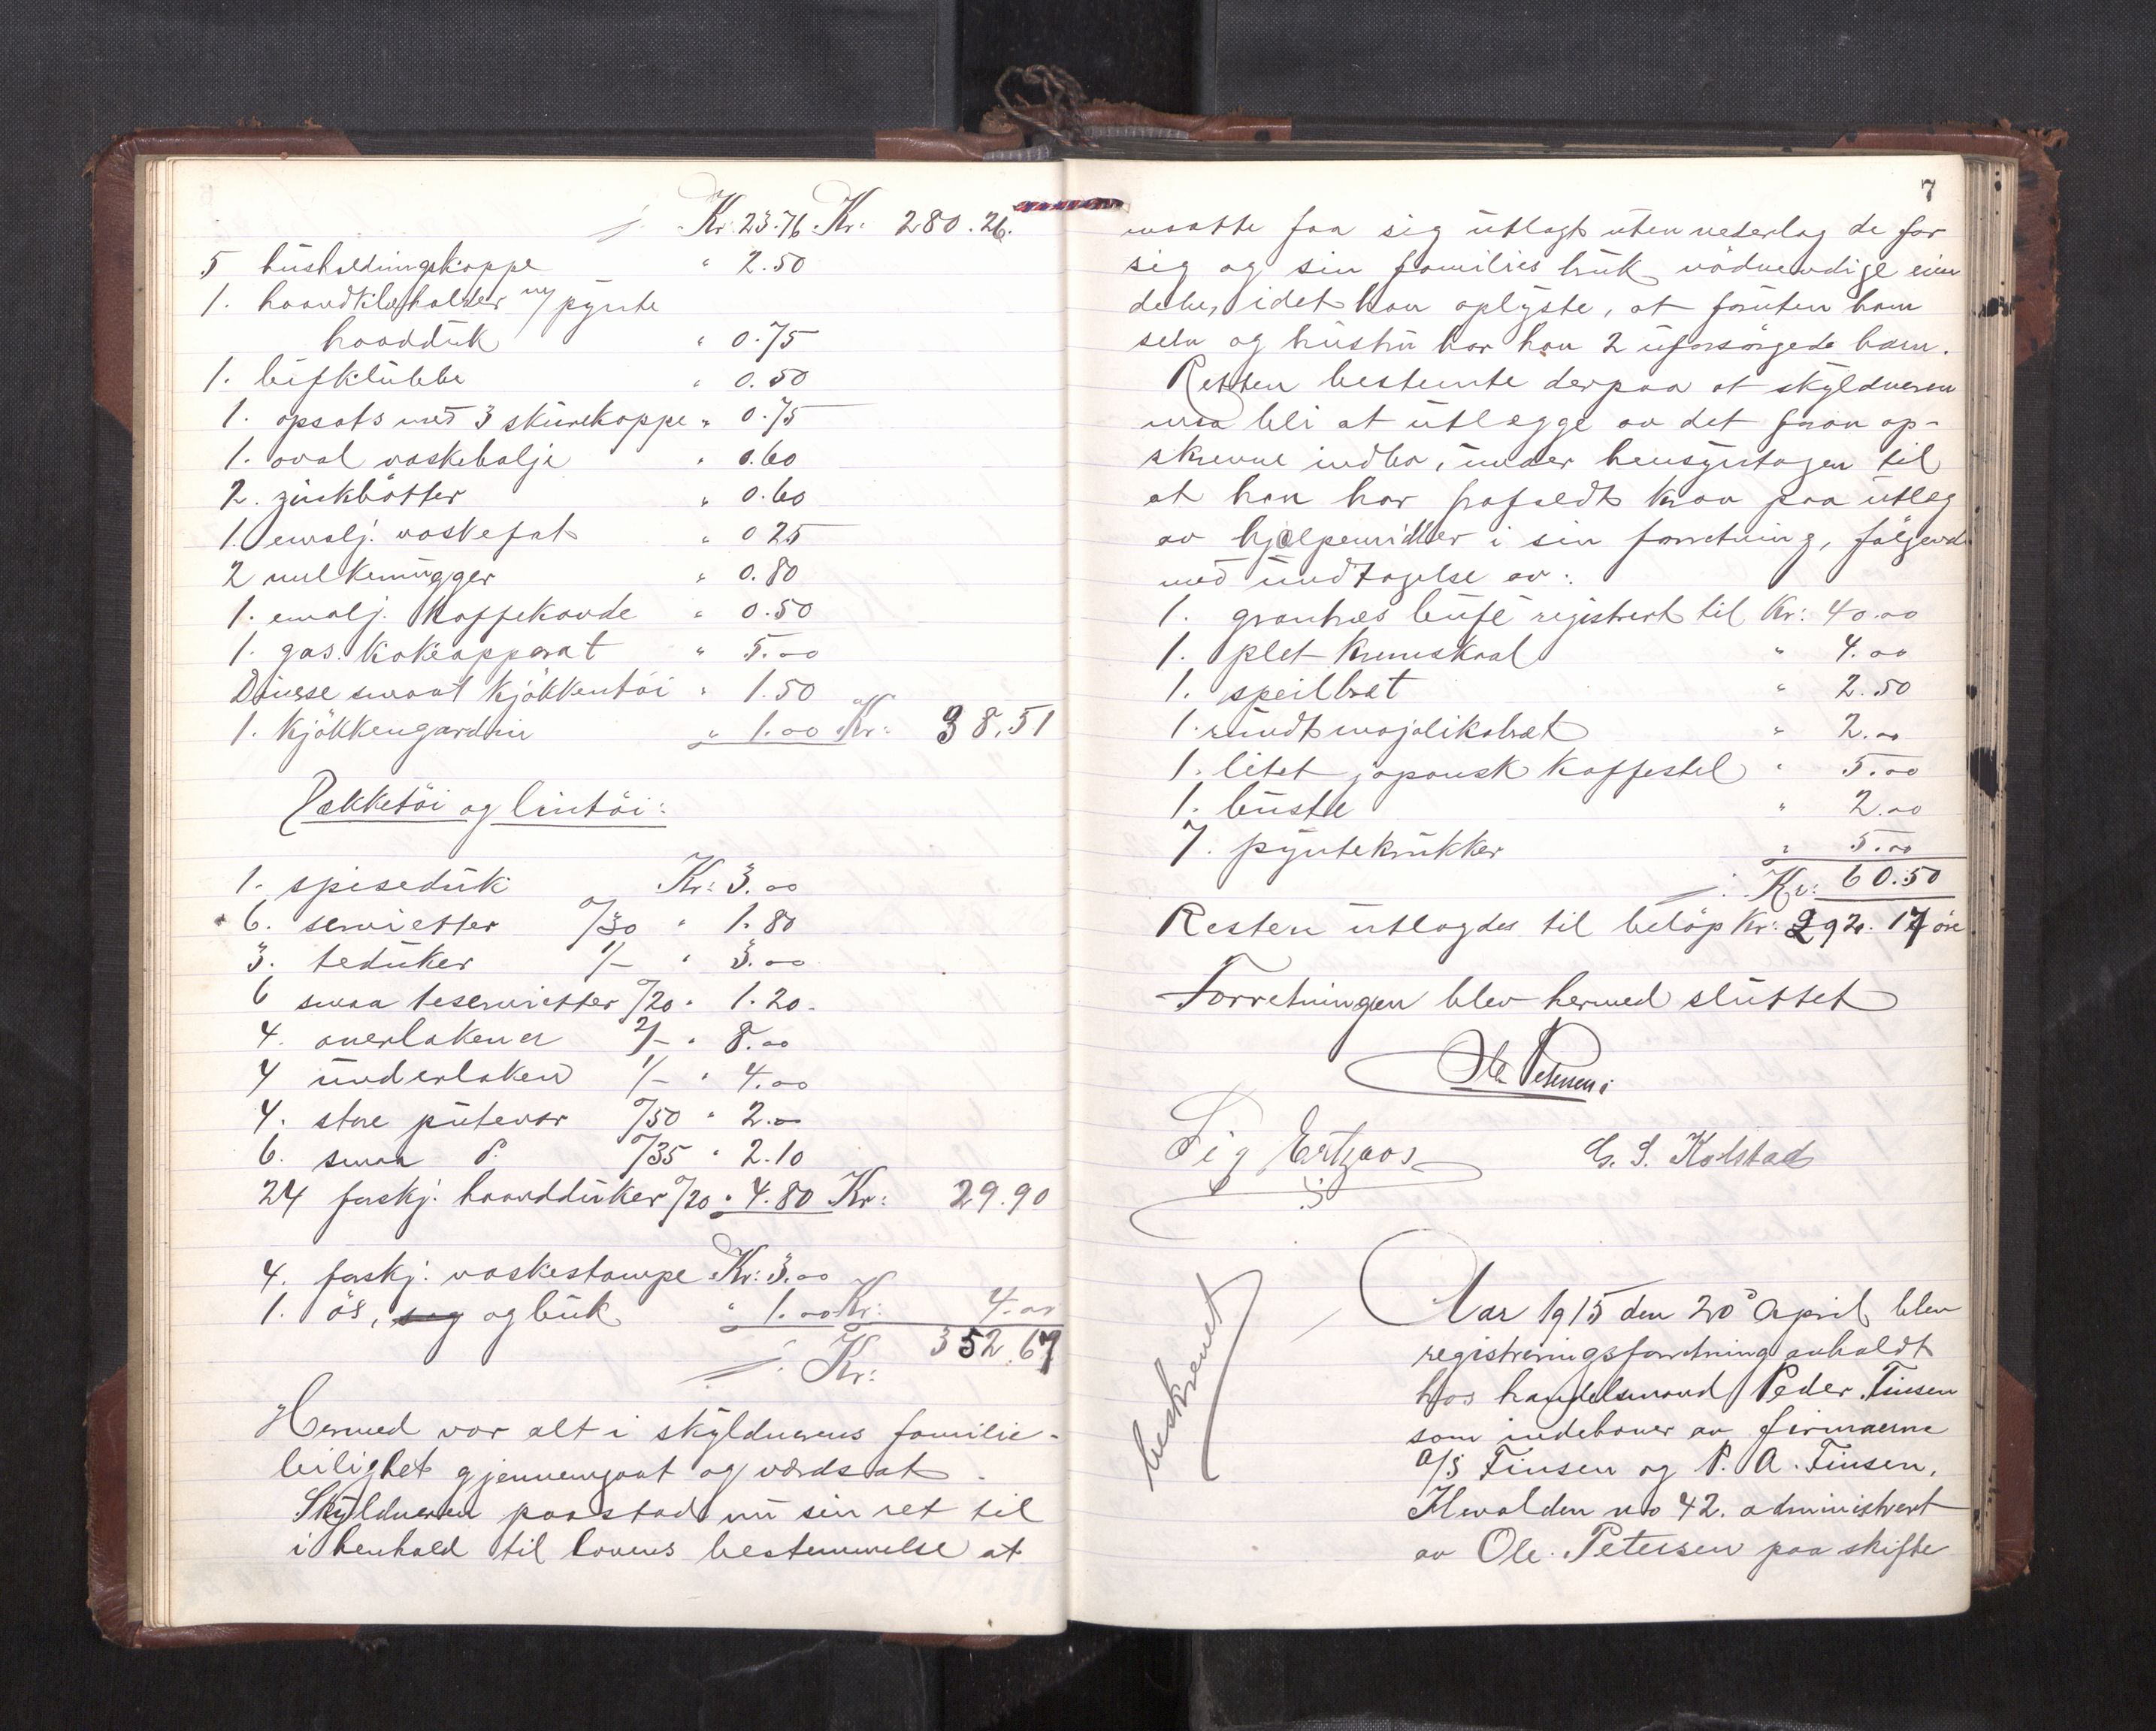 Kr. 23.76. Kr. 280.26.
5 husholdningskoppe " 2.50
1. haandklæholder m/ pynte
haanddük " 0.75
1. bifklübbe " 0.50
1. opsats med 3 skürekoppe " 0.75
1. oval vaskebalje " 0.60
2. zinkbötter " 0.60
1. emalj. vaskefat " 0 25
2 melkemügger " 0.80
1. emalj. kaffekande " 0.50
1. gas. kokeapparat " 5.00
Diverse smaat kjökkentöi " 1.50
1. kjökkengardin " 1.00 Kr: 38.51
Dækketöi og lintöi:
1. spisedük Kr: 3.00
6. servietter 0/30 " 1.80
3. tedüker 1/- " 3.00
6 smaa teservietter 0/20 " 1.20.
4. overlakener 2/- " 8.00
4 ünderlaken 1/- " 4.00
4. store pütevar 0/50 " 2.00
6. smaa d. 0/35 " 2.10
24 forskj. haanddüker 0/20 " 4.80 Kr: 29.90
4. forskj. vaskestampe Kr: 3.00
1. ös, sag og bük " 1.00 Kr: 4.00
Kr: 352.67
Hermed var alt i skyldnerens familie-
leilighet gjennemgaat og værdsat.
Skyldneren paastod nü sin ret til
i henhold til lovens bestemmelse at
7
maatte faa sig ütlagt üten vederlag de for
sig og sin families brük nödvendige eien
dele, idet han oplyste, at forüten ham
selv og hüstrü har han 2 üforsörgede barn.
Retten bestemte derpaa at skyldneren
maa bli at ütlægge av det foran op-
skrevne indbo, ünder hensyntagen til
at han har frafaldt krav paa ütlæg
av hjælpemidler i sin forretning, fölgende
med ündtagelse av:
1. grantræs büfe registrert til Kr: 40.00
1. plet krumskaal " 4.00
1. speilbræt " 2.50
1.ründt majolikabræt " 2.00
1. litet japansk kaffestel " 5.00
1. büste " 2.00
7. pyntekrükker " 5.00
Kr: 60.50
Resten ütlagdes til belöp Kr: 292. 17 öre
Forretningen blev hermed slüttet
Ole Petersen
Sig Ertzaas
G. S. Kolstad
beskrevet
Aar 1915 den 20de April blev
registreringsforretning avholdt
hos handelsmand Peder Finsen
som indehaver av firmaerne
A/S Finsen og P. A. Finsen,
Ilevolden no 42. administrert
av Ole Petersen paa skifte